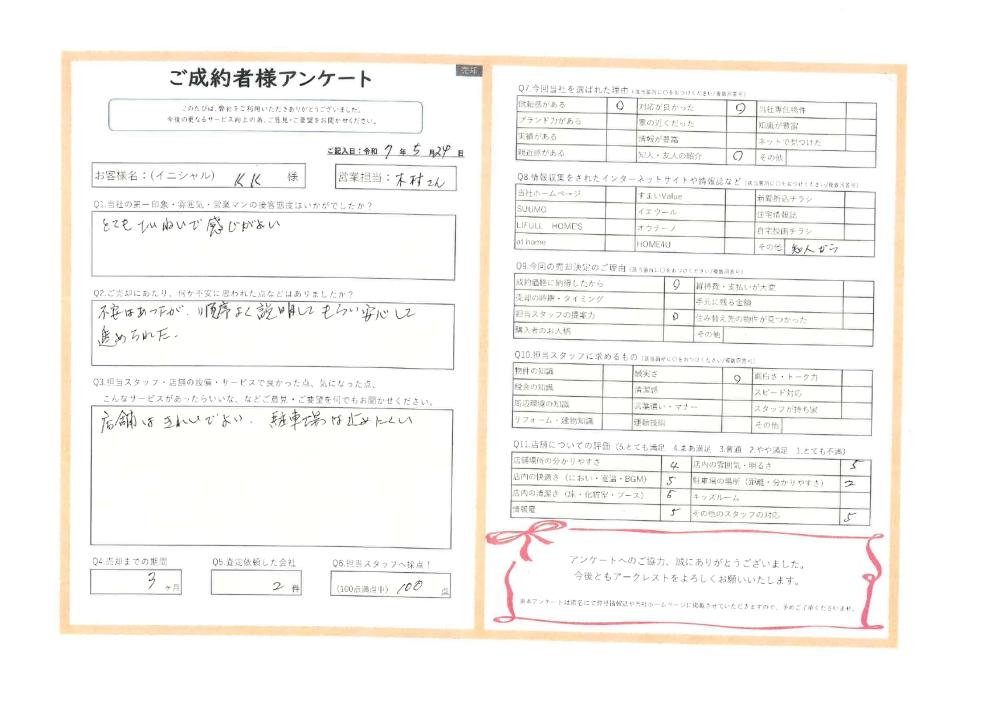 売却
ご成約者様アンケート
このたびは、弊社をご利用いただきありがとうございました。
今後の更なるサービス向上の為、ご意見・ご要望をお聞かせください。
ご記入日：令和 7 年 5 月 29 日
お客様名：(イニシャル) KK 様
営業担当：木村さん
Q1.当社の第一印象・雰囲気・営業マンの接客態度はいかがでしたか？
とても ていねいで 感じがよい
Q2.ご売却にあたり、何か不安に思われた点などはありましたか？
不安はあったが、順序よく説明してもらい安心して
進められた.
Q3.担当スタッフ・店舗の設備・サービスで良かった点、気になった点、
こんなサービスがあったらいいな、などご意見・ご要望を何でもお聞かせください。
店舗は きれいでよい. 駐車場は 止めにくい
Q4.売却までの期間
3 ヶ月
Q5.査定依頼した会社
2 件
Q6.担当スタッフへ採点！
(100点満点中) 100 点
Q7.今回当社を選ばれた理由 (該当箇所に○をおつけください/複数回答可)
信頼感がある ○ 対応が良かった ○ 当社専任物件
ブランド力がある 家の近くだった 知識が豊富
実績がある 情報が豊富 ネットで見つけた
親近感がある 知人・友人の紹介 ○ その他
Q8.情報収集をされたインターネットサイトや情報誌など (該当箇所に○をおつけください/複数回答可)
当社ホームページ すまいValue 新聞折込チラシ
SUUMO イエウール 住宅情報誌
LIFULL HOME'S オウチーノ 自宅投函チラシ
at home HOME4U その他 知人から
Q9.今回の売却決定のご理由 (該当箇所に○をおつけください/複数回答可)
成約価格に納得したから ○ 維持費・支払いが大変
売却の時期・タイミング 手元に残る金額
担当スタッフの提案力 ○ 住み替え先の物件が見つかった
購入者のお人柄 その他
Q10.担当スタッフに求めるもの (該当箇所に○をおつけください/複数回答可)
物件の知識 誠実さ ○ 面白さ・トーク力
税金の知識 清潔感 スピード対応
周辺環境の知識 言葉遣い・マナー スタッフが持ち家
リフォーム・建物知識 運転技術 その他
Q11.店舗についての評価 (5.とても満足 4.まあ満足 3.普通 2.やや満足 1.とても不満)
店舗場所の分かりやすさ 4 店内の雰囲気・明るさ 5
店内の快適さ (におい・室温・BGM) 5 駐車場の場所 (距離・分かりやすさ) 2
店内の清潔さ (床・化粧室・ブース) 5 キッズルーム
情報量 5 その他のスタッフの対応 5
アンケートへのご協力、誠にありがとうございました。
今後ともアークレストをよろしくお願いいたします。